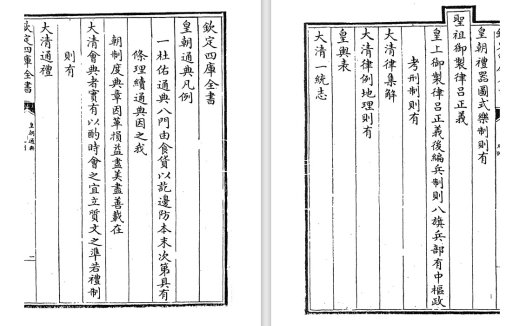 欽定四庫全書
皇朝通典凡例
一杜佑通典八門由食貨以訖邊防本末次第具有
條理續通典因之我
朝制度典章因革損益盡美盡善載在
大清會典者實有以酌時會之宜立質文之準若禮制
則有
大清通禮
欽定四庫全書
皇朝通典
皇朝禮器圖式樂制則有
聖祖御製律呂正義
皇上御製律呂正義後編兵制則八旗兵部有中樞政
考刑制則有
大清律集解
大清律例地理則有
皇輿表
大清一統志